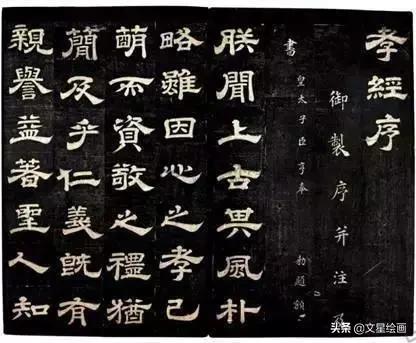 孝經序
御製序并注及
書
皇太子臣亨奉 勅題額
朕聞上古其風朴
略雖因心之孝已
萌而資敬之禮猶
簡及乎仁義既有
親譽益著聖人知
头条 @文星绘画